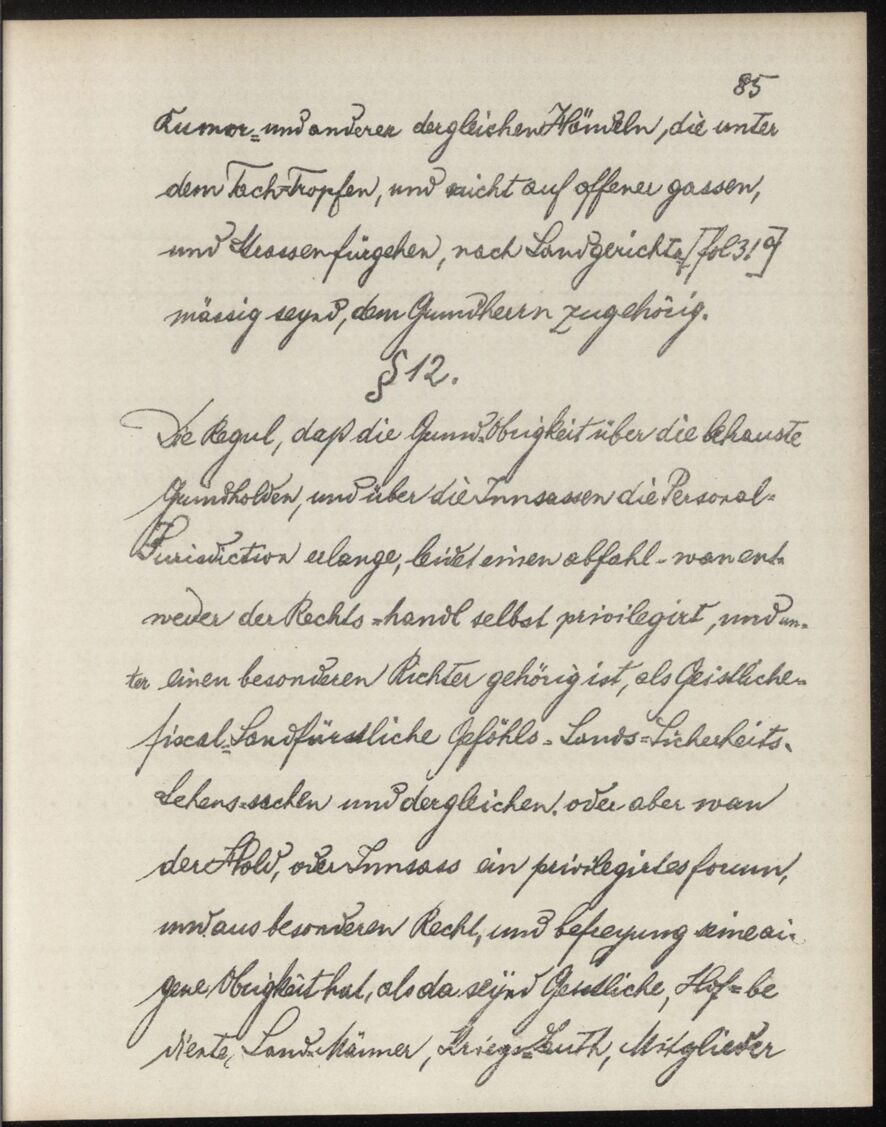 85
Rumor= und anderer dergleichen Händeln, die unter
dem Tach=Tropfen, und nicht auf offener gassen,
und Strassen fürgehen, nach Landgerichts [fol 31 v]
mässig seynd, dem Grundherrn zugehörig.
§ 12.
Die Regul, daß die Grund=Obrigkeit über die behauste
Grundholden, und über die Innsassen die Personal=
Jurisdiction erlange, leidet einen abfahl - wan ent=
weder der Rechts=handl selbst privilegirt, und un=
ter einen besonderen Richter gehörig ist, als Geistliche=
fiscal=Landfürstliche Geföhls=Lands=Sicherheits=
Lehens=sachen und dergleichen. oder aber wan
der Hold, oder Innsass ein privilegirtes forum,
und aus besonderen Recht, und befreyung seine ai=
gene Obrigkeit hat, als da seynd Geistliche, Hof=be
diente, Land=Männer, Kriegs=Leuth, Mitglieder